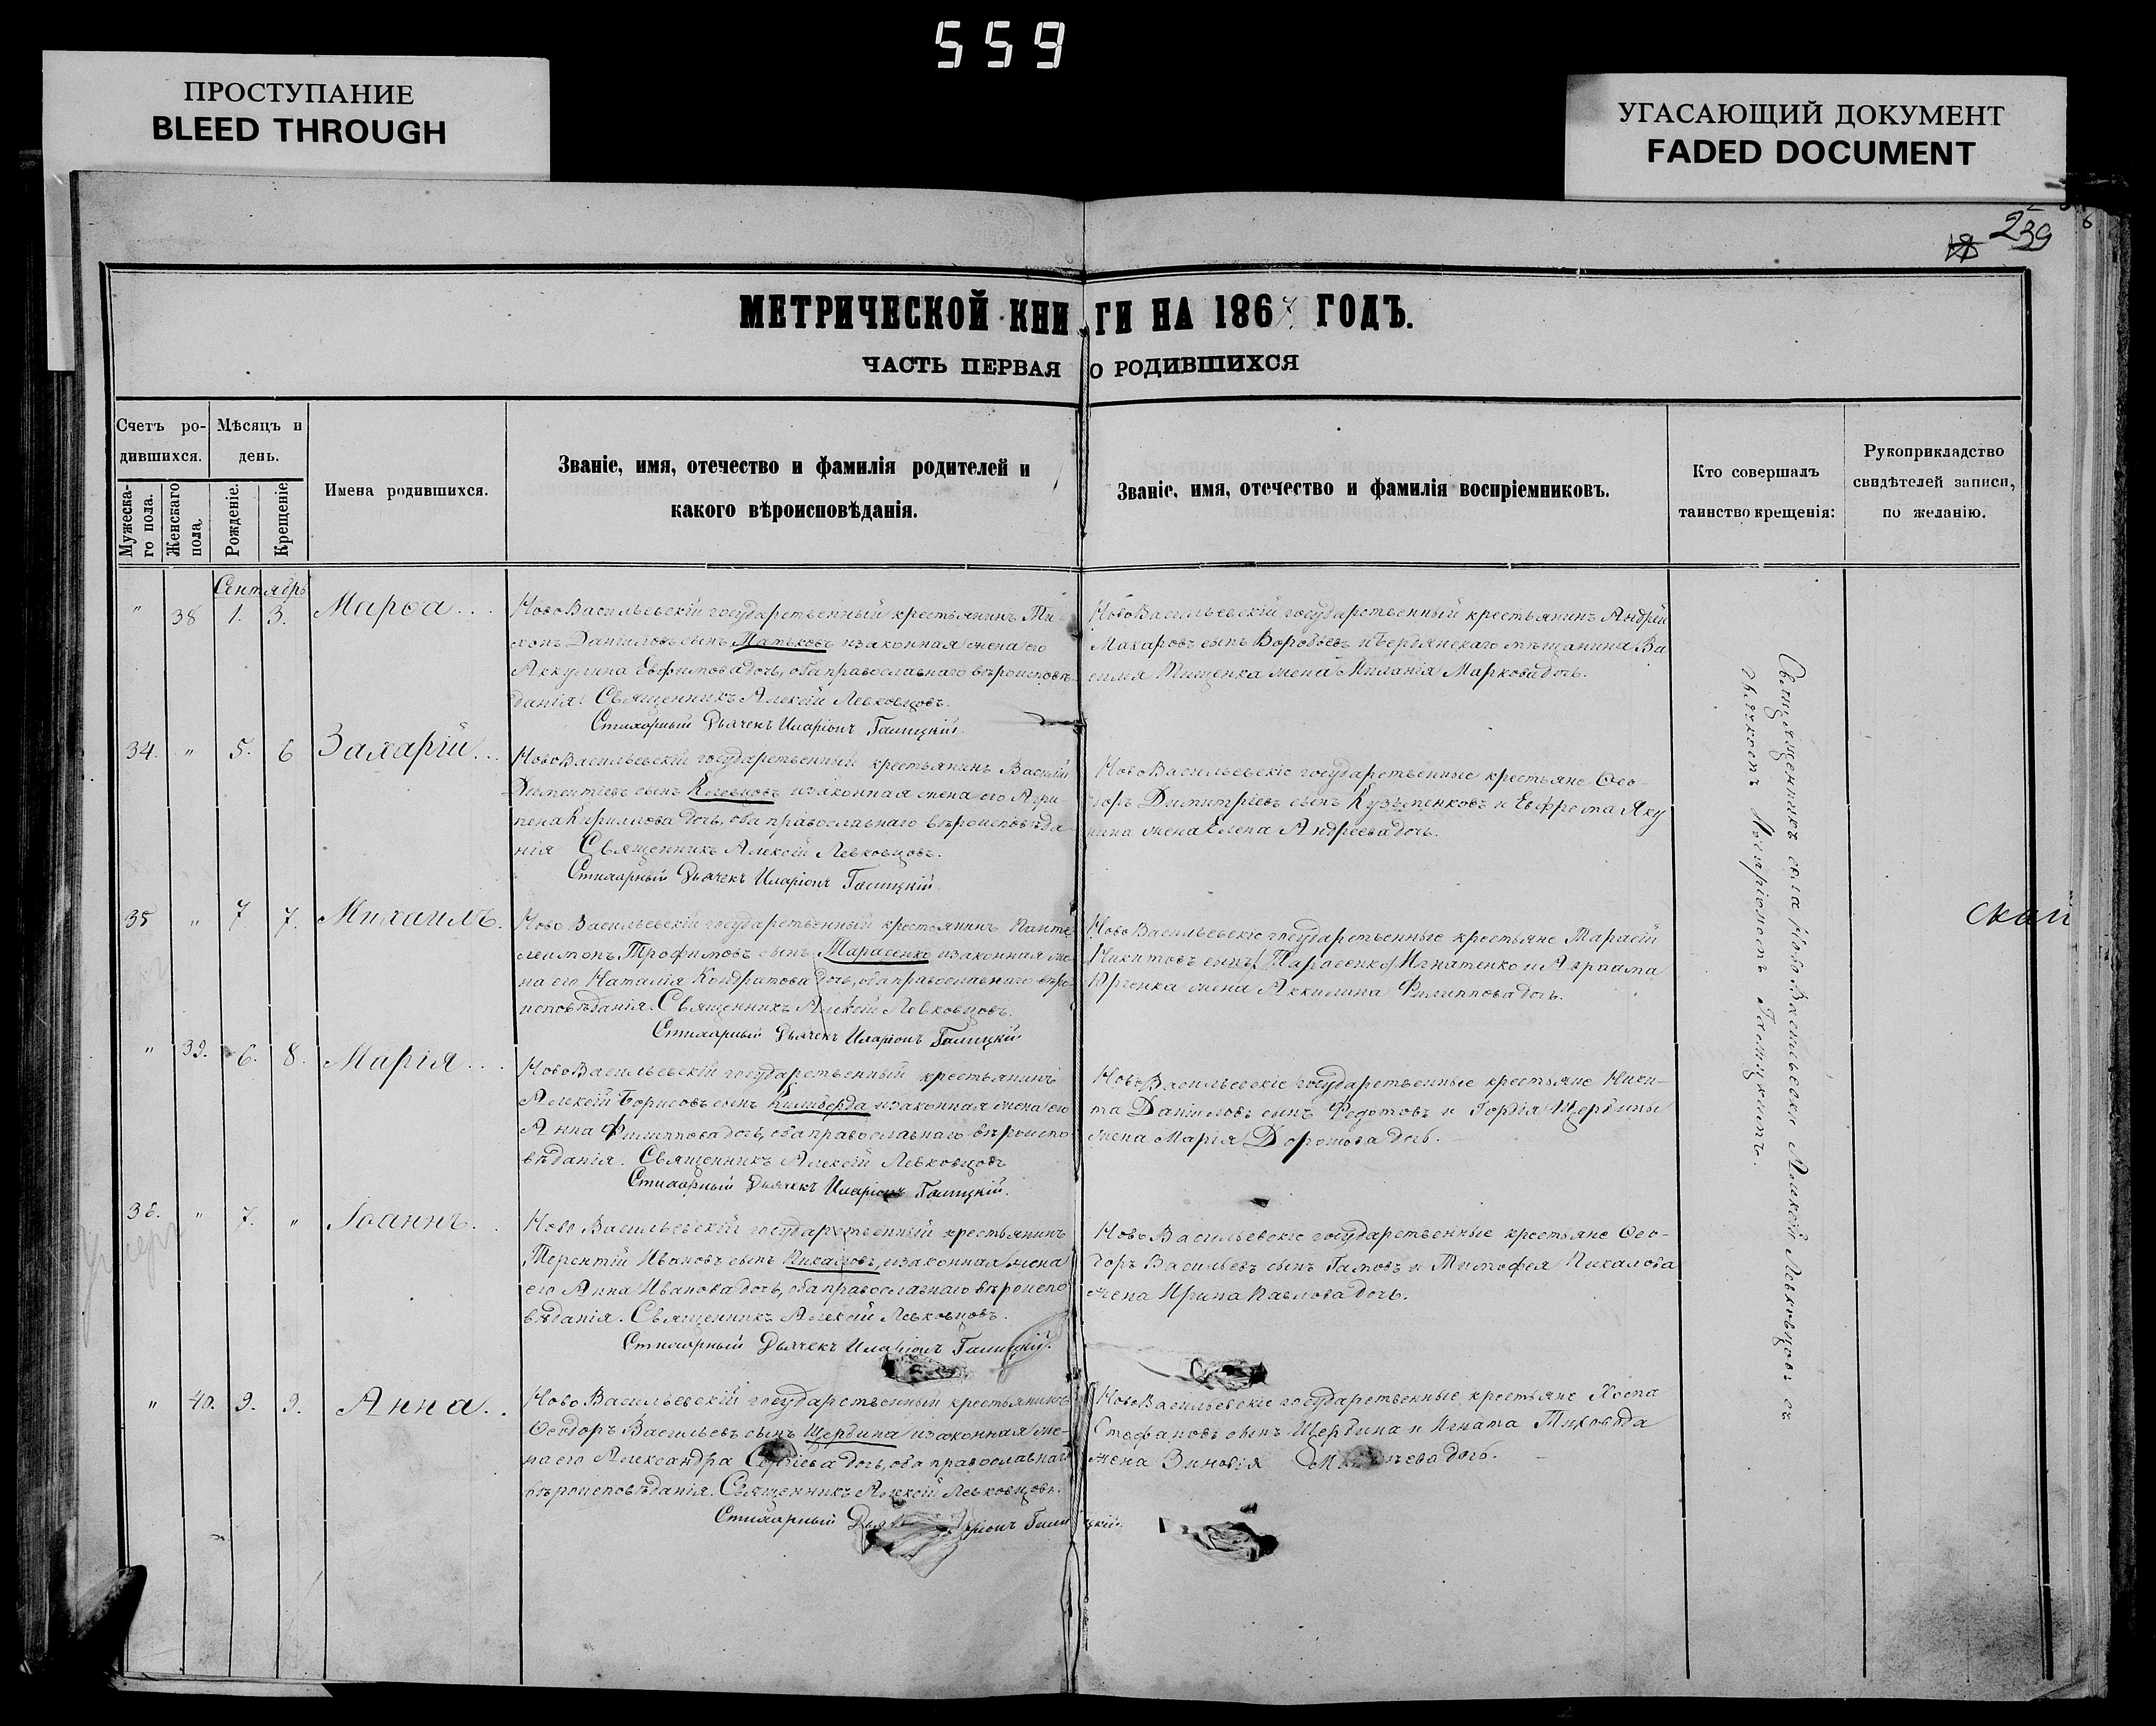 559
ПРОСТУПАНИЕ
BLEED THROUGH
УГАСАЮЩИЙ ДОКУМЕНТ
FADED DOCUMENT
239
МЕТРИЧЕСКОЙ КНИГИ НА 1867 ГОДЪ.
ЧАСТЬ ПЕРВАЯ О РОДИВШИХСЯ
Счетъ ро-
дившихся.
Мужеска-
го пола.
Женскаго
пола.
Мѣсяцъ и
день.
Рожденіе.
Крещеніе
Имена родившихся.
Званіе, имя, отечество и фамилія родителей и
какого вѣроисповѣданія.
Званіе, имя, отечество и фамилія воспріемниковъ.
Кто совершалъ
таинство крещенія:
Рукоприкладство
свидѣтелей записи,
по желанію.
Сентябрь
" 38 1. 3. Марѳа
НовоВасильевскій государственный крестьянинъ Ти-
хонъ Даниловъ сынъ Матьковъ и законная жена его
Аккулина Евфимова дочь, оба православнаго вѣроисповѣ-
данія. Священникъ Алексѣй Левковцовъ.
Стихарный Дьячекъ Иларіонъ Галицкій.
НовоВасильевскій государственный крестьянинъ Андрей
Макаровъ сынъ Воробьевъ и Бердянскаго мѣщанина Ва
силія Пищенка жена Миланія Маркова дочь.
34. " 5. 6 Захарій
НовоВасильевскій государственный крестьянинъ Василій
сынъ и законная жена его Агри-
пена Кириллова дочь, оба православнаго вѣроисповѣда-
нія Священникъ Алексѣй Левковцовъ.
Стихарный Дьячекъ Иларіонъ Галицкій.
НовоВасильевскіе государственные крестьяне Ѳео-
доръ Димитріевъ сынъ Кузьменковъ и Евфрема Яку
нина жена Елена Андреева дочь.
35 " 7 7. Михаилъ.
Ново Васильевскій государственный крестьянинъ Панте
леимонъ Трофимовъ сынъ Тарасенко и законная же
на его Наталія Кондратова дочь, оба православнаго вѣро
исповѣданія. Священникъ Алексѣй Левковцовъ.
Стихарный Дьячекъ Иларіонъ Галицкій
НовоВасильевскіе государственные крестьяне Тарасій
Никитовъ сынъ Игнатенко и Авраама
Юрченка жена Аккилина Филиппова дочь.
" 39. 6. 8. Марія
НовоВасильевскій государственный крестьянинъ
Алексѣй Борисовъ сынъ Килиберда и законная жена его
Анна Филиппова дочь, оба православнаго вѣроиспо
вѣданія. Священникъ Алексѣй Левковцовъ
Стихарный Дьячекъ Иларіонъ Галицкій.
НовоВасильевскіе государственные крестьяне Ники-
та Даниловъ сынъ Федотовъ и Гордія Щербины
жена Марія дочь.
36. " 7. " Іоаннъ.
Ново Васильевскій государственный крестьянинъ
Терентій Ивановъ сынъ Пихаловъ, и законная жена
его Анна Иванова дочь, оба православнаго вѣроиспо
вѣданія. Священникъ Алексѣй Левковцовъ.
Стихарный Дьячекъ Иларіонъ Галицкій.
НовоВасильевскіе государственные крестьяне Ѳео-
доръ Васильевъ сынъ Гамовъ и Тимофея Пихалова
жена Ирина Павлова дочь.
" 40. 9. 9. Анна
НовоВасильевскій государственный крестьянинъ
Ѳеодоръ Васильевъ сынъ Щербина и законная же-
на его Александра Сергіева дочь, оба православнаго
вѣроисповѣданія. Священникъ Алексѣй Левковцовъ.
Стихарный Галицкій.
НовоВасильевскіе государственные крестьяне
Стефановъ сынъ Щербина и Игната
жена Зиновія дочь.
Священникъ села НовоВасильевки Алексѣй Левковцовъ съ
дьячкомъ Иларіономъ Галицкимъ.